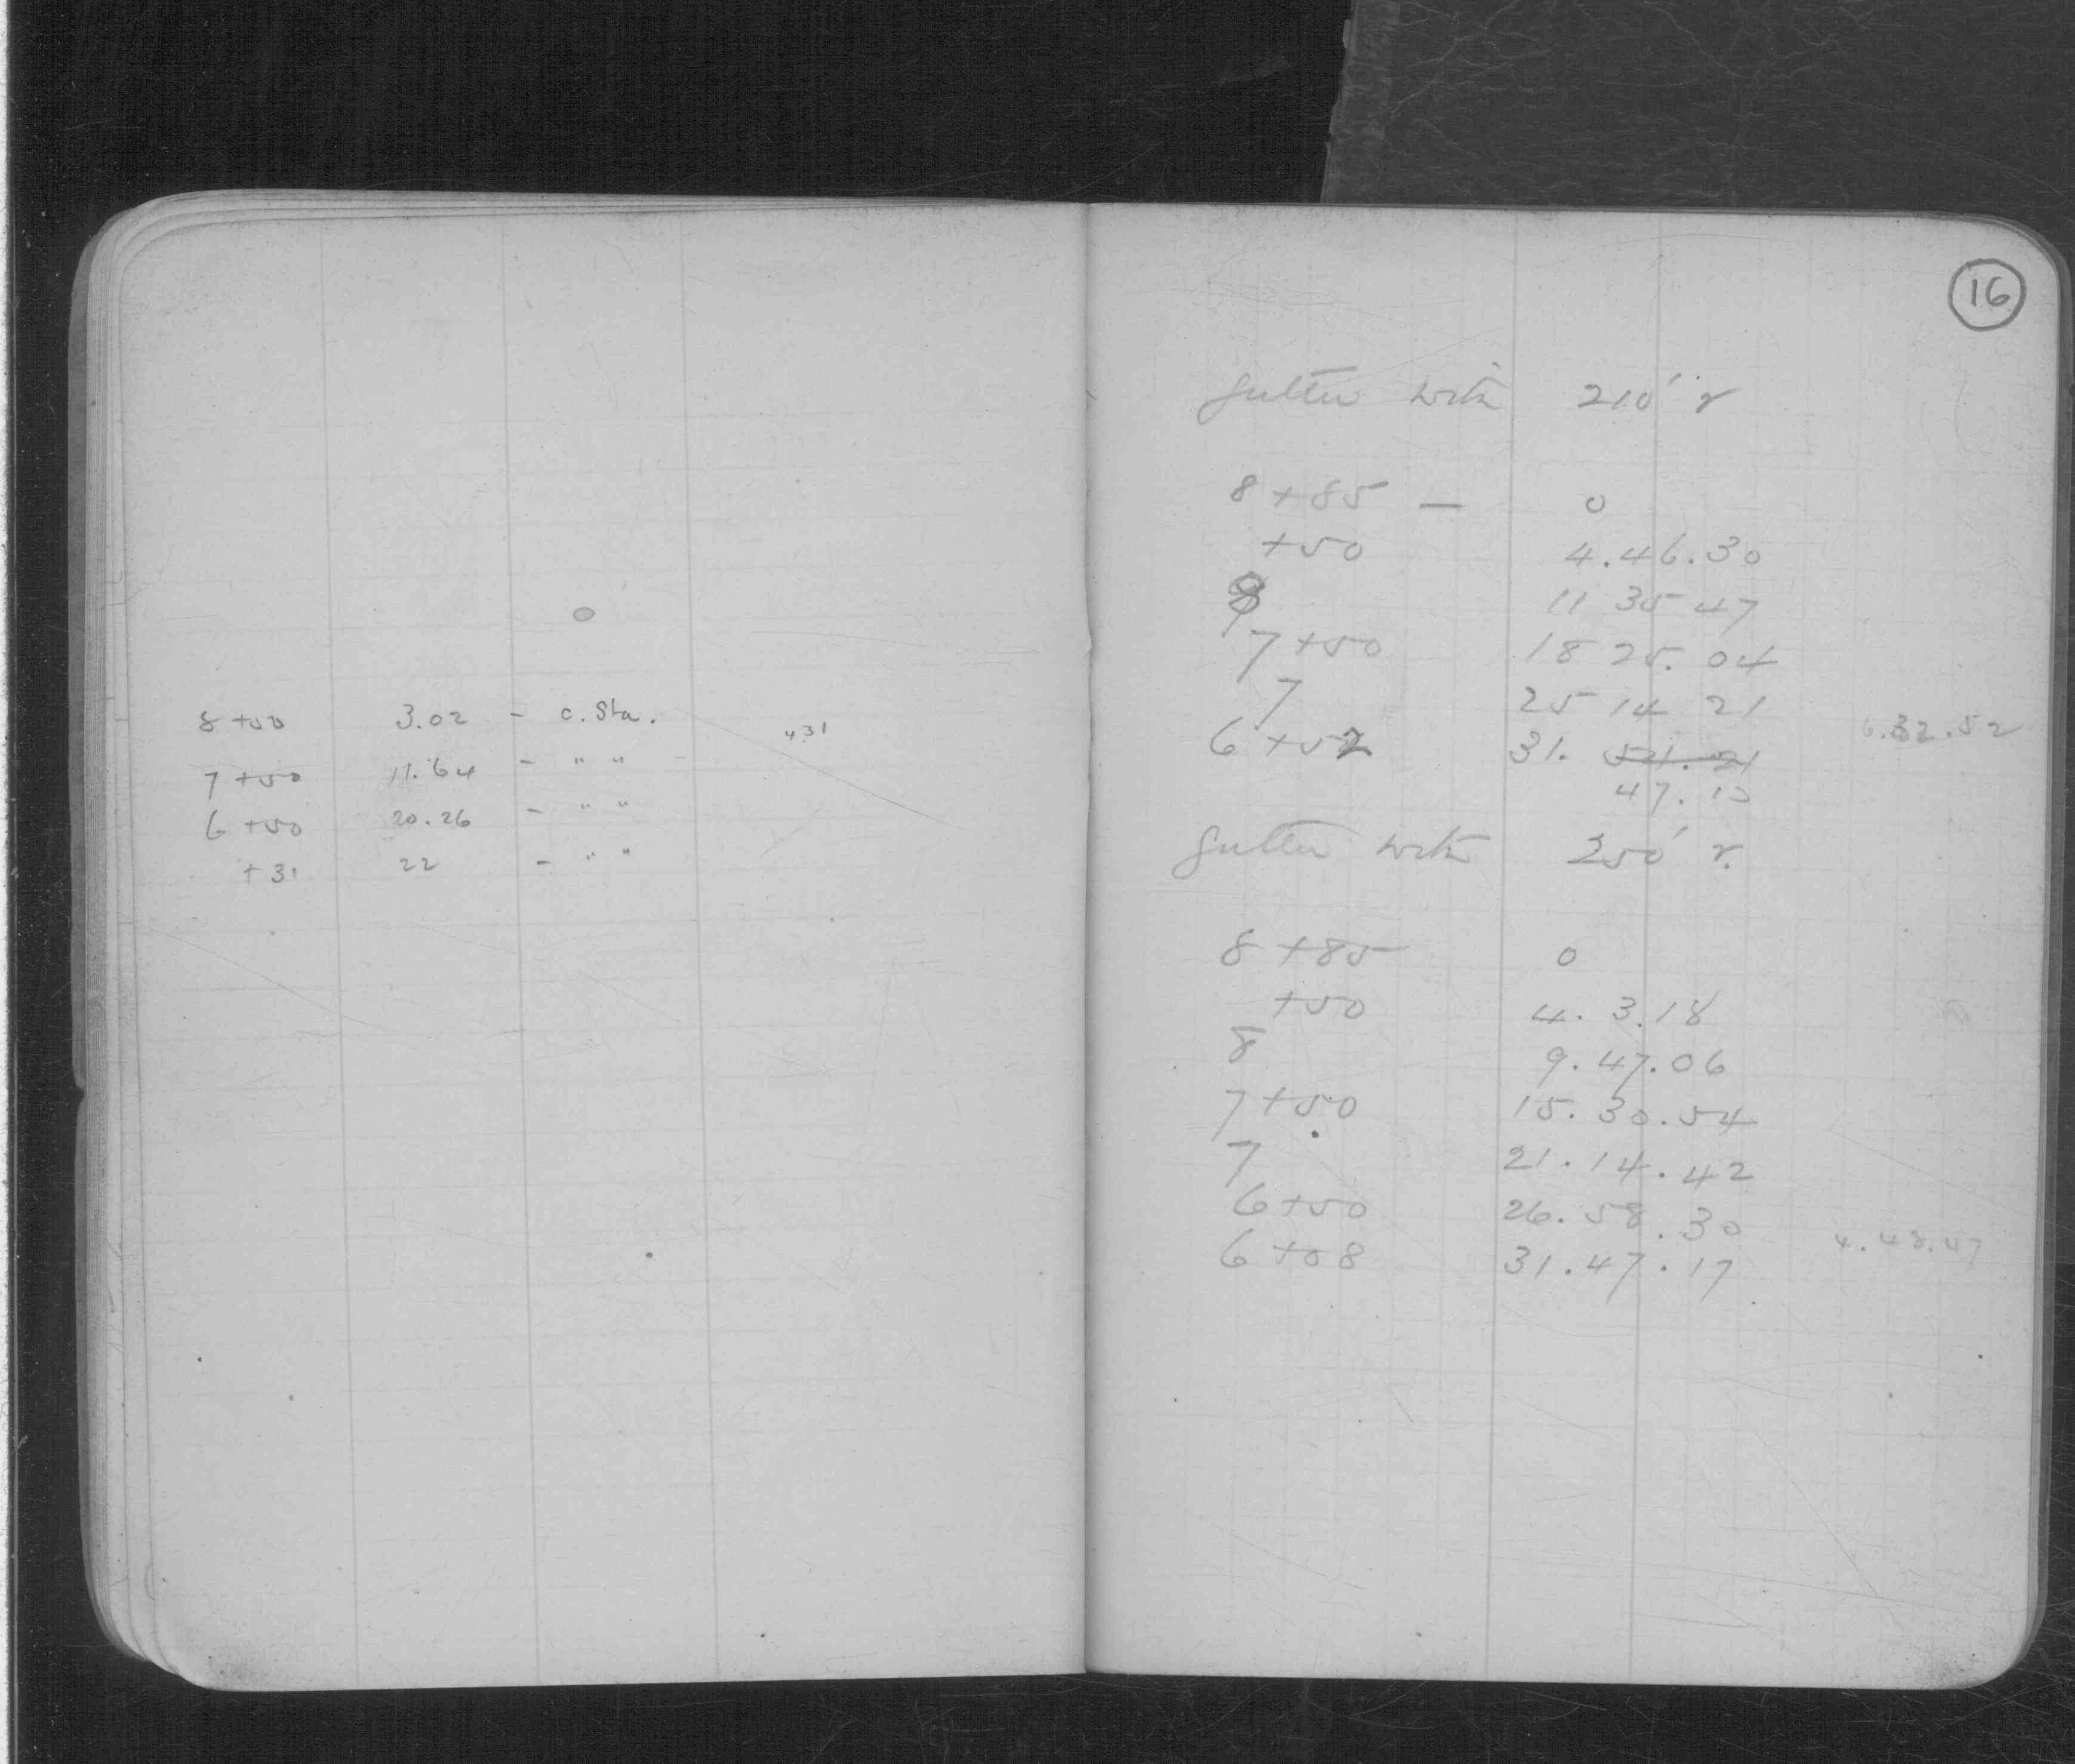 8+50 3.02 - c. Sta.
431
7+50 11.64 - " "
6+50 20.26 - " "
+31 22 - " "
16
Gutter with 210' r
8+85 — 0
+50 4.46.30
8 11 35 47
7+50 18 25. 04
7 25 14 21
6+52 31. 51. 21 6.32.52
47.13
Gutter with 250' r.
8+85 0
+50 4. 3.18
8 9.47.06
7+50 15.30.54
7 21.14.42
6+50 26.58.30
6+08 31.47.17 4.48.47